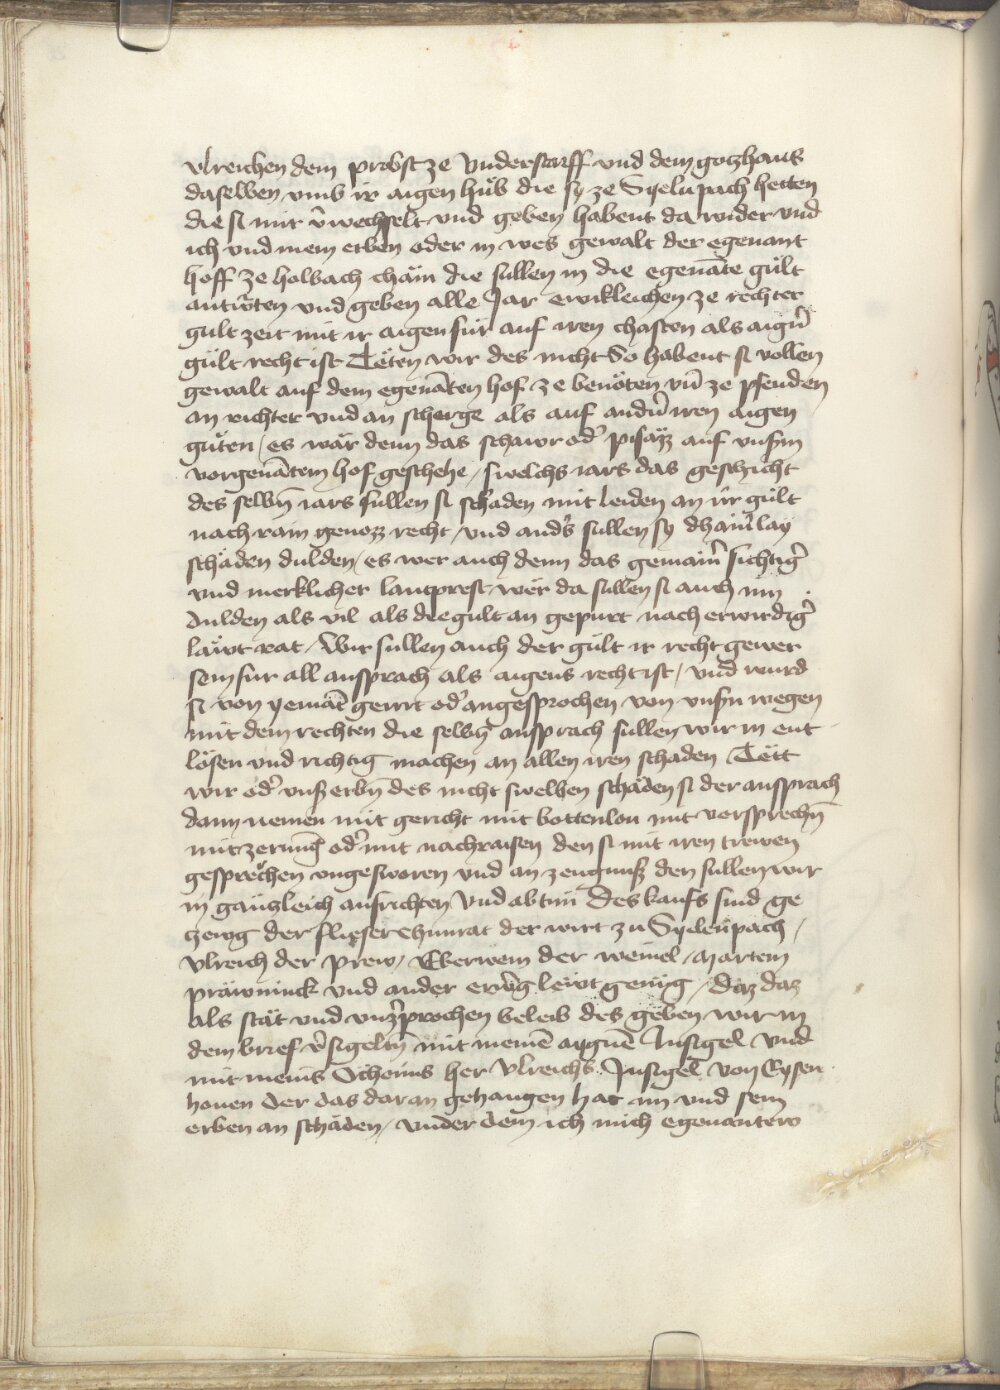 vlreichen dem probst ze Vnderstarff vnd dem gotzhaus
daselben vmb ir aigen hůb die sy ze Syelnpach hetten
die si mir v̄wechselt vnd geben habent da wider vnd
ich vnd mein erben oder in wes gewalt der egenant
hoff ze holbach chäm die sullen in die egenāte gült
antw̄ten vnd geben alle Jar ewikleichen ze rechter
gult zeit mit ir aigen für auf iren chasten als aign̄
gült recht ist Tëten wir des nicht So habent si vollen
gewalt auf dem egenāten hof ze benöten vn̄ ze pfenden
an richter vnd an scherge als auf andn̄ iren aigen
guten / es wär denn das schawr od̛ pisäzz auf vnsm̄
vorgenātem hof geschehe / swelchs iars das geschicht
des selbn̄ iars sullen si schaden mit leiden an ir gült
nach räm genozz recht / vnd and̛s sullen sy dhainlay
schäden dulden / es wer auch denn das gemain̛ sichtig̛
vnd merklicher lantprest wër da sullen si auch nin
dulden als vil als die gult an gepurt nach erwirdig̛
läwt rat / Wir sullen auch der gült ir recht gewer
sein fur all ansprach als aigens recht ist / vnd wurd
si von yemāt geirrt od̛ angesprochen von vnsn̄ wegen
mit dem rechten die selbn̄ ansprach sullen wir in ent
lösen vnd richtig machen an allen iren schaden Tëtt
wir od̛ vnß erbn̄ des nicht swelben schäden si der ansprach
dann nemen mit gericht mit bottenlon mit vorsprechn̄
mit zerung od̛ mit nachraisen den si mit iren trewen
gesprechen vngesworen vnd an zeugnuß den sullen wir
in gänzleich ausrichten vnd abtun Des kaufs sind ge
zewg der fliesser Chunrat der wirt zu Syelenpach /
Vlreich der prew / Eberwein der weinel / Martein
präwninck vnd ander erw̛g lewt genüg / daz daz
als stät vnd vnz̛prochen beleib des geben wir in
dem brief v̄sigeltn̄ mit meinē aygnē Insigel vnd
mit meins Öcheims her Vlreichs Insigel von Eysen
houen der das daran gehangen hat im vnd sein
erben an schäden / vnder dem ich mich egenanter